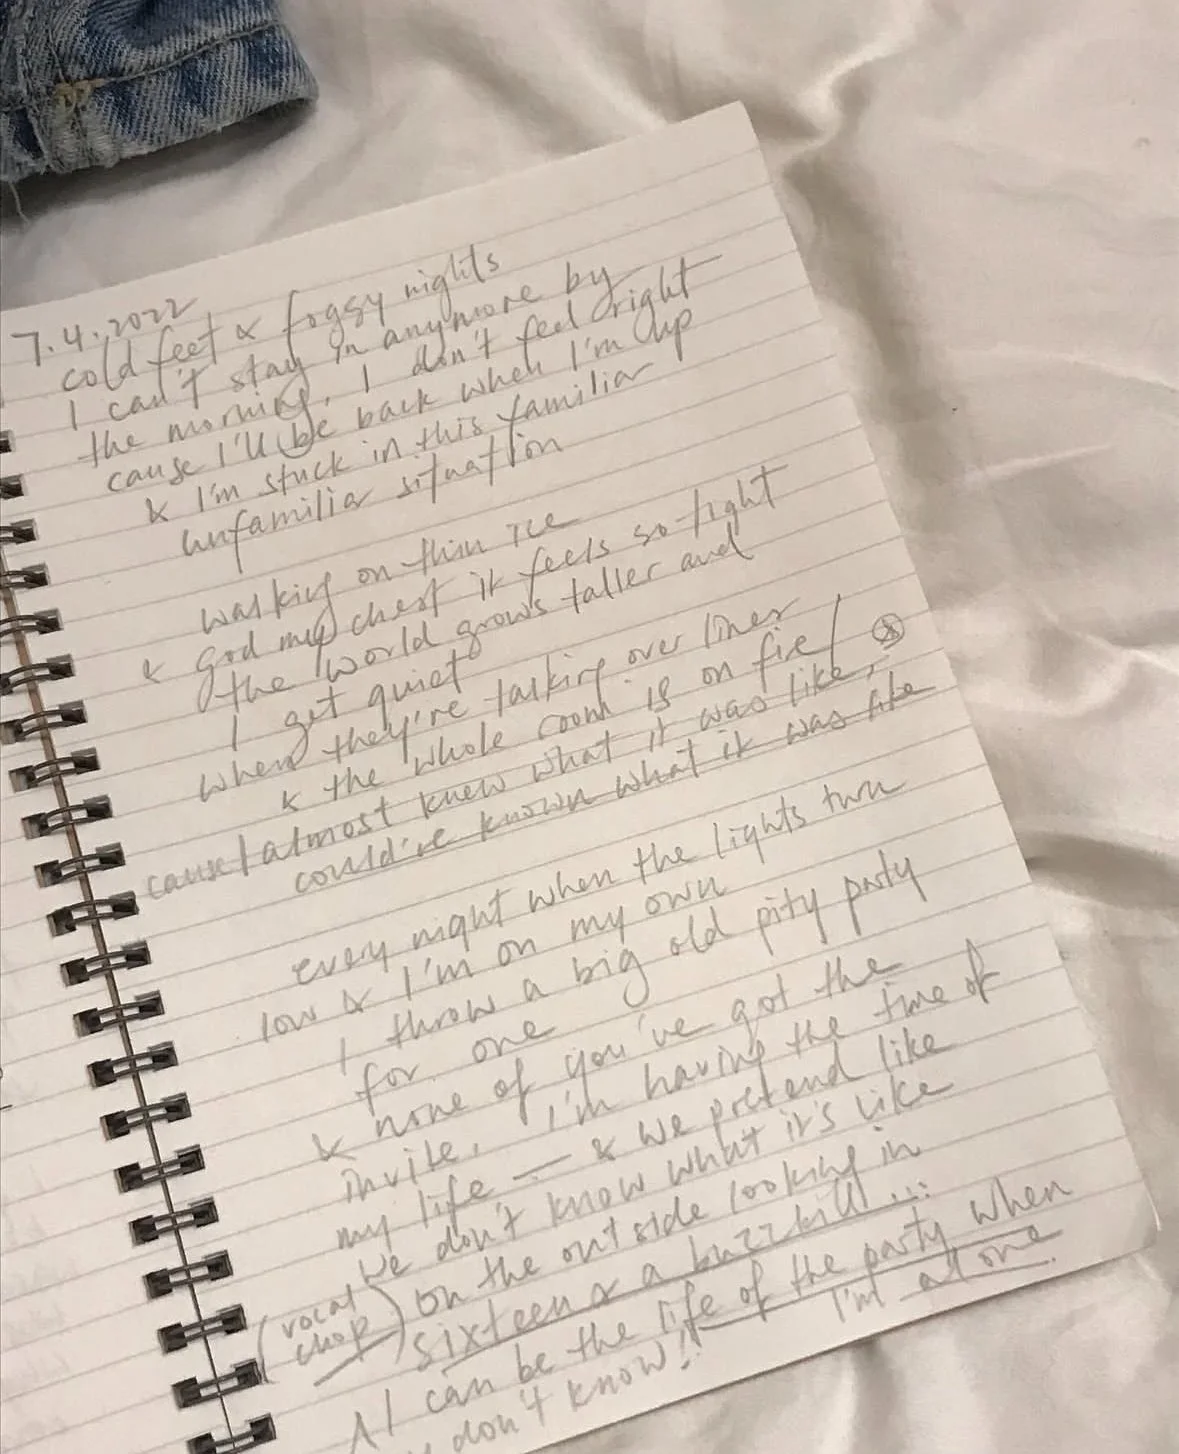 7.4.2022
cold feet & foggy nights
I can't stay in anymore by
the morning, I don't feel right
cause I'll be back when I'm up
& I'm stuck in this familiar
unfamiliar situation
walking on thin ice
& god my chest it feels so tight
the world grows taller and
I get quiet
when they're talking over lines
& the whole room is on fire /
cause I almost knew what it was like,
could've known what it was like
every night when the lights turn
low & I'm on my own
I throw a big old pity party
for one
& none of you've got the
invite. I'm having the time of
my life — & we pretend like
we don't know what it's like
on the outside looking in
(vocal chop) sixteen & a buzzkill...
I can be the life of the party when
I'm alone
don't know!!